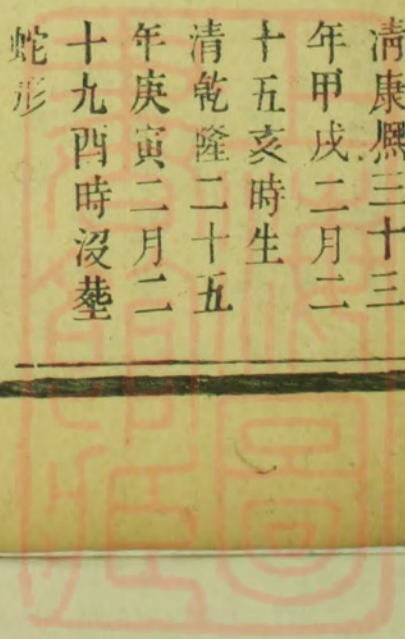 清康熈三十三
年甲戌二月二
十五亥時生
清乾隆二十五
年庚寅二月二
十九酉時沒塟
蛇形